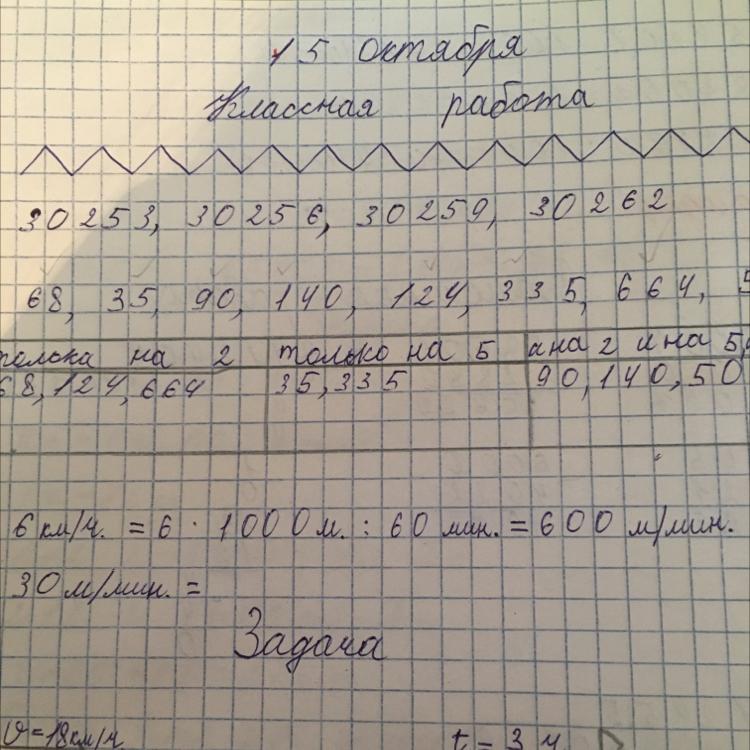 15 октября
Классная работа
30253, 30256, 30259, 30262
68, 35, 90, 140, 124, 335, 664, 5
только на 2 только на 5 и на 2 и на 5
68, 124, 664 35, 335 90, 140, 50
6 км/ч. = 6 · 1000 м. : 60 мин. = 600 м/мин.
30 м/мин. =
Задача
v = 18 км/ч t = 3 ч